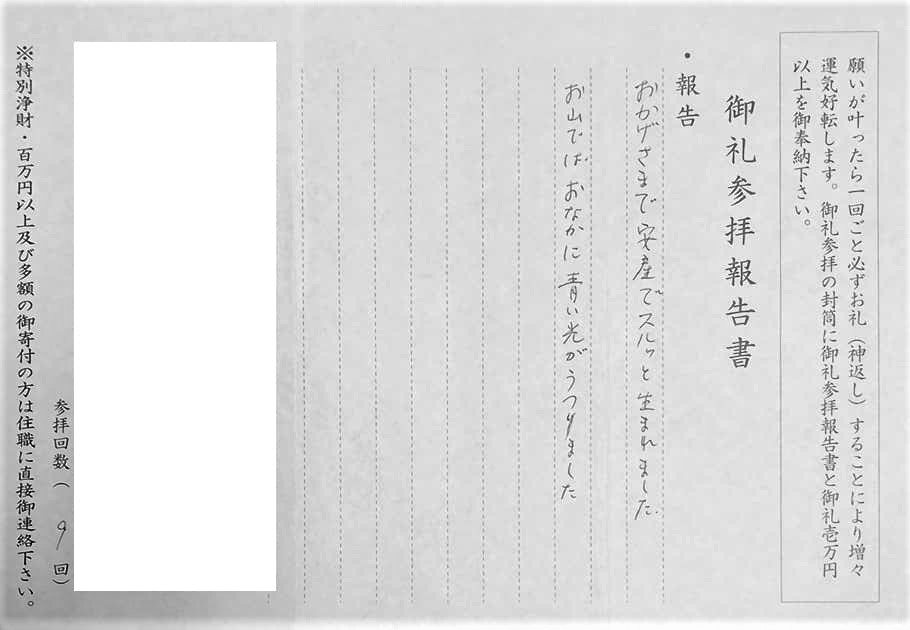 願いが叶ったら一回ごと必ずお礼（神返し）することにより増々
運気好転します。御礼参拝の封筒に御礼参拝報告書と御礼壱万円
以上を御奉納下さい。
御礼参拝報告書
・報告
おかげさまで安産でスルッと生まれました.
お山では おなかに 青い光がうつりました
参拝回数（ 9 回）
※特別浄財・百万円以上及び多額の御寄付の方は住職に直接御連絡下さい。